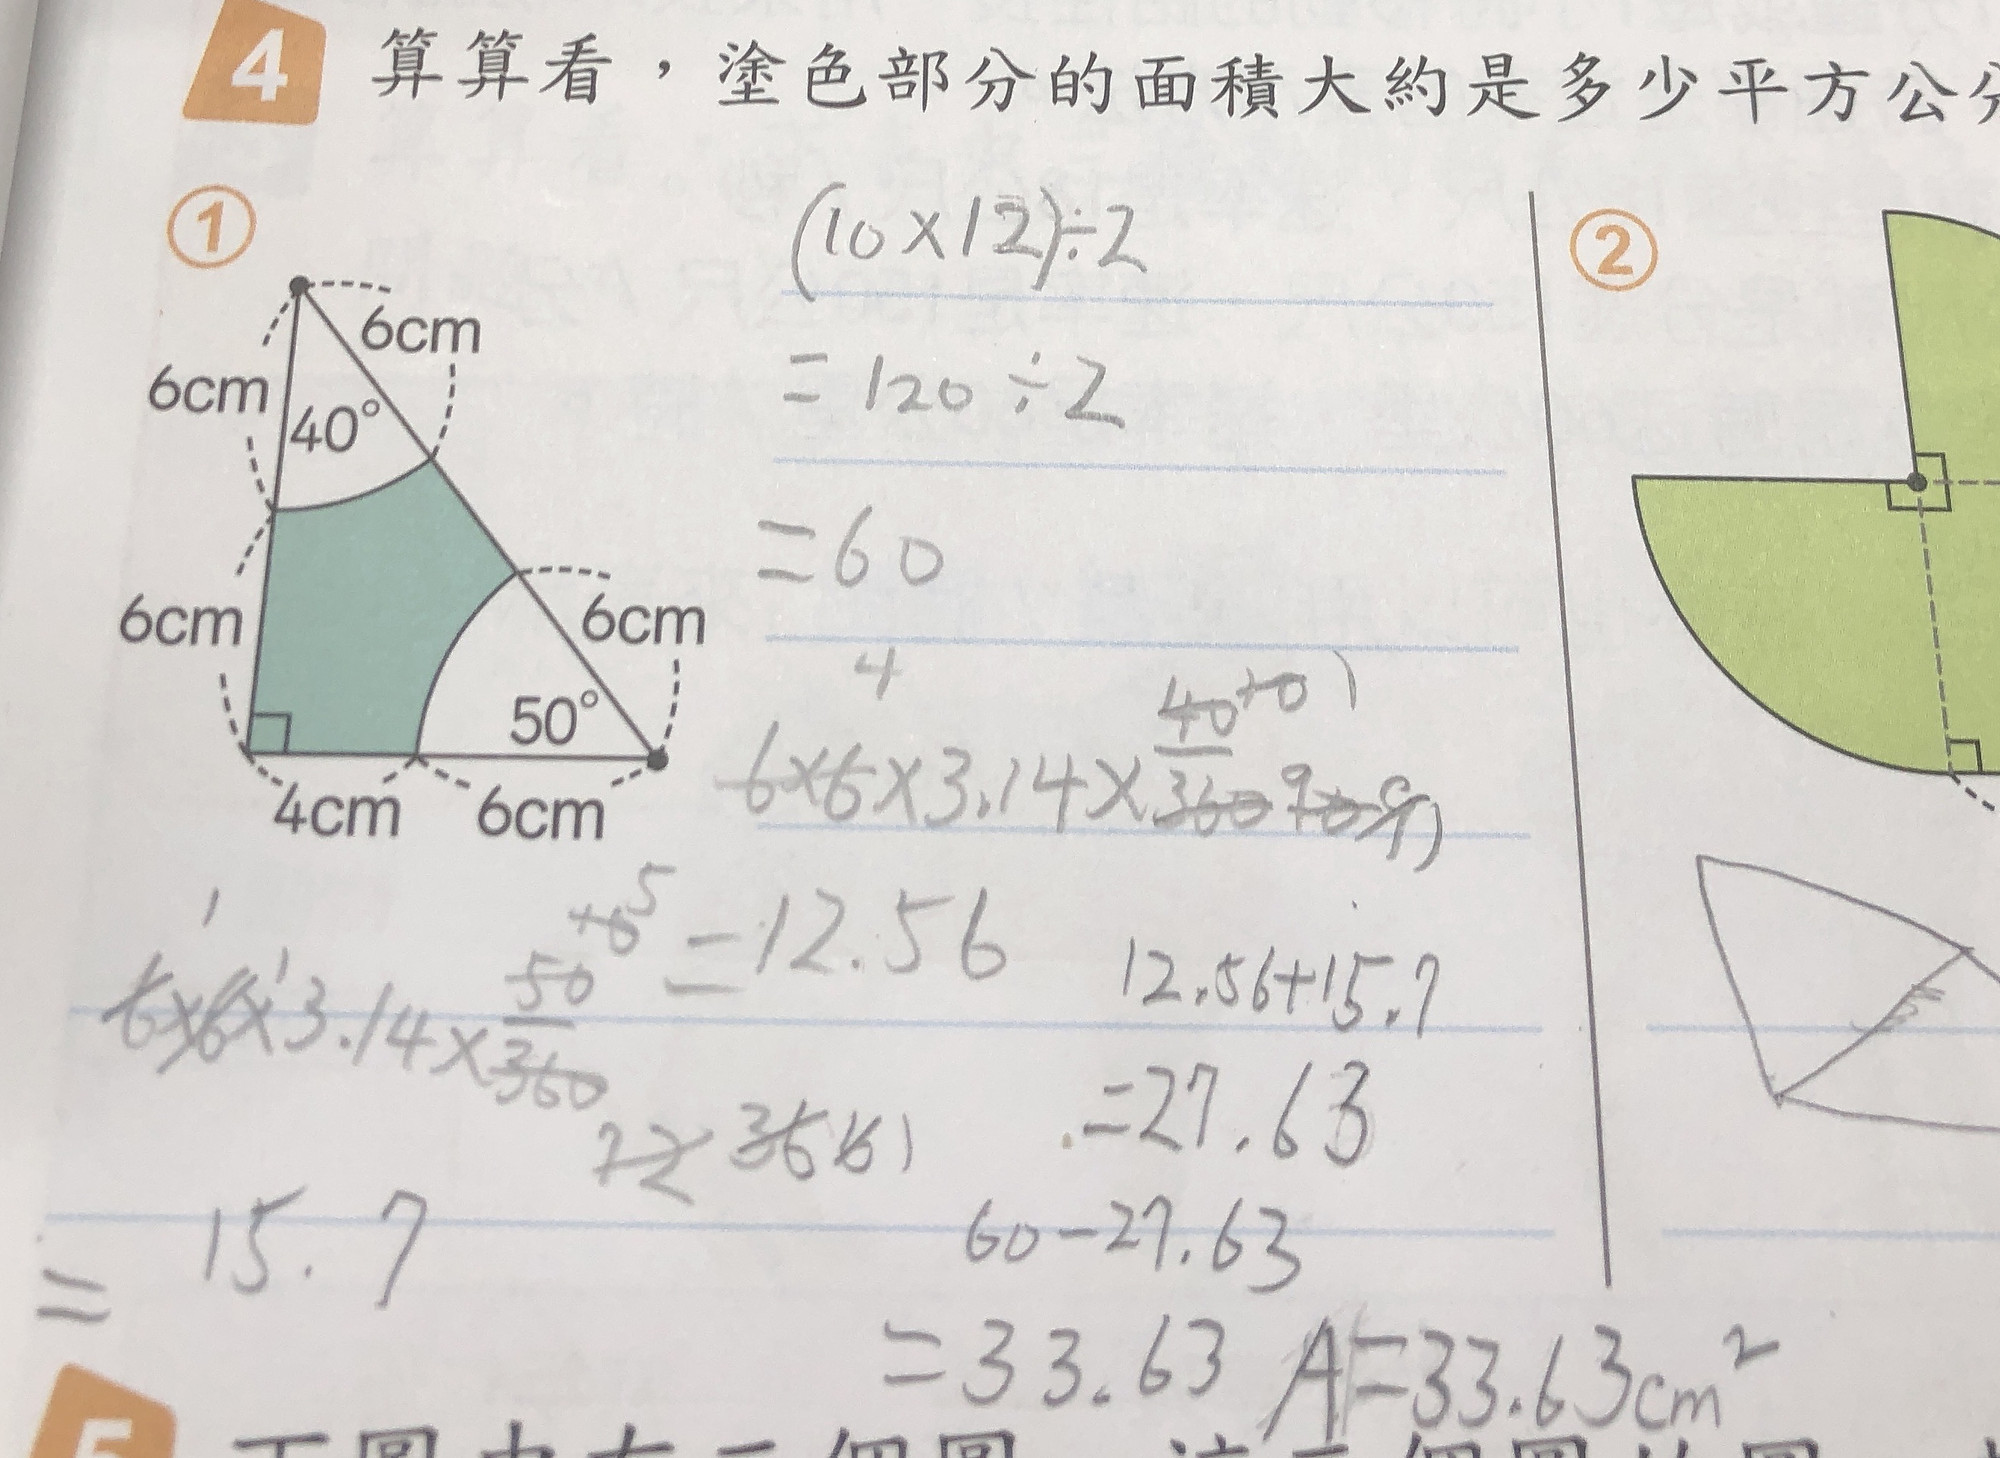 4 算算看，塗色部分的面積大約是多少平方公分
①
6cm
6cm
40°
6cm
6cm
50°
4cm
6cm
(10×12)÷2
=120÷2
=60
4
6×6×3.14×40/360
10 1
90 9 1
=12.56
1 1
6×6×3.14×50/360
10 5
72 36 6 1
=15.7
12.56+15.7
=27.63
60-27.63
=33.63 A=33.63cm²
②
5